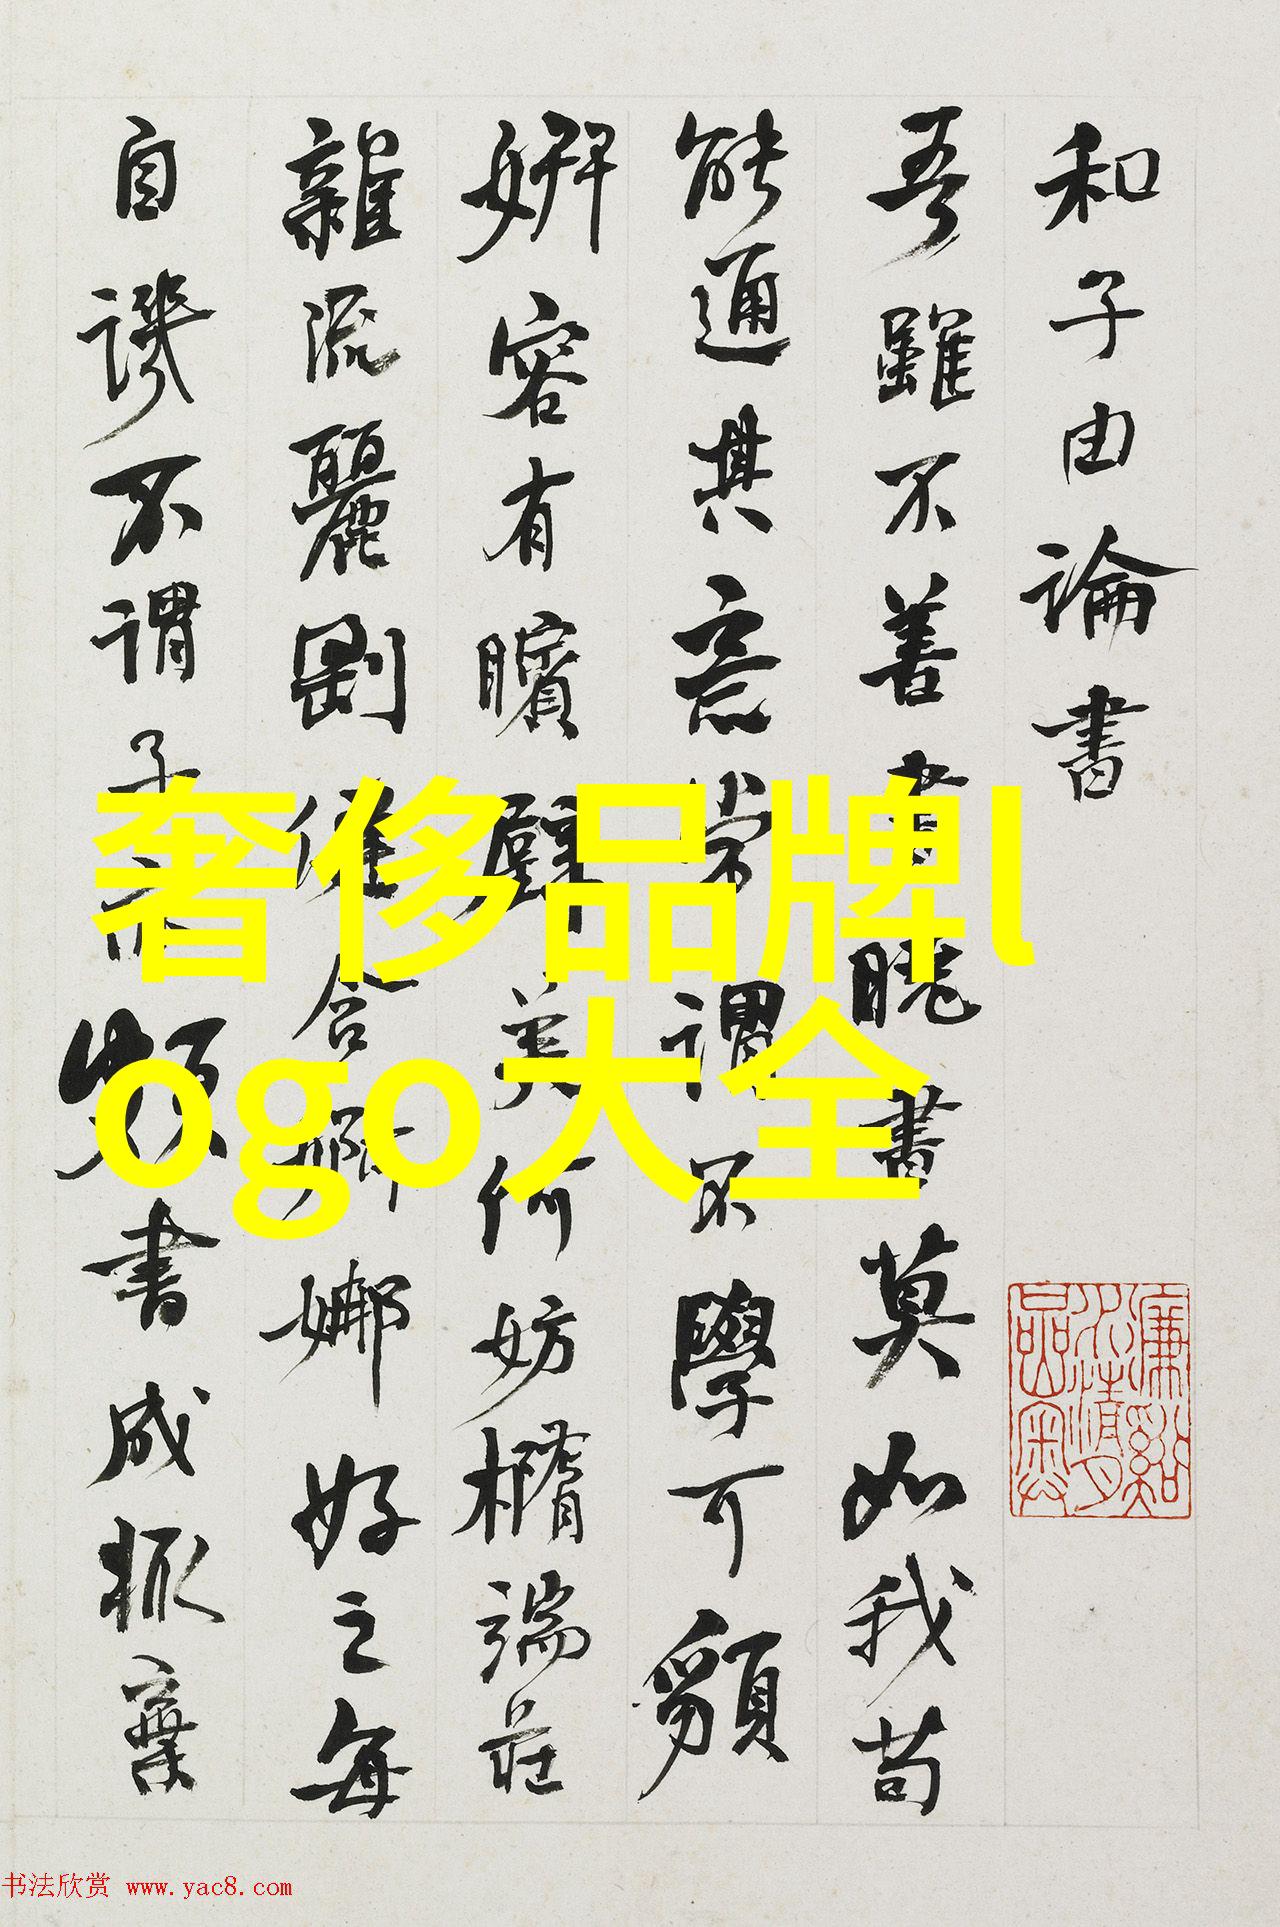 和子由論書
吾雖不善書曉書莫如我苟
能通其意常謂不學可䫉
姸容有矉璧美何妨橢端莊
雜流麗剛健含婀娜好之每
自譏不謂子亦頗書成輒棄
奢侈品牌l
ogo大全
书法欣赏 www.yac8.com